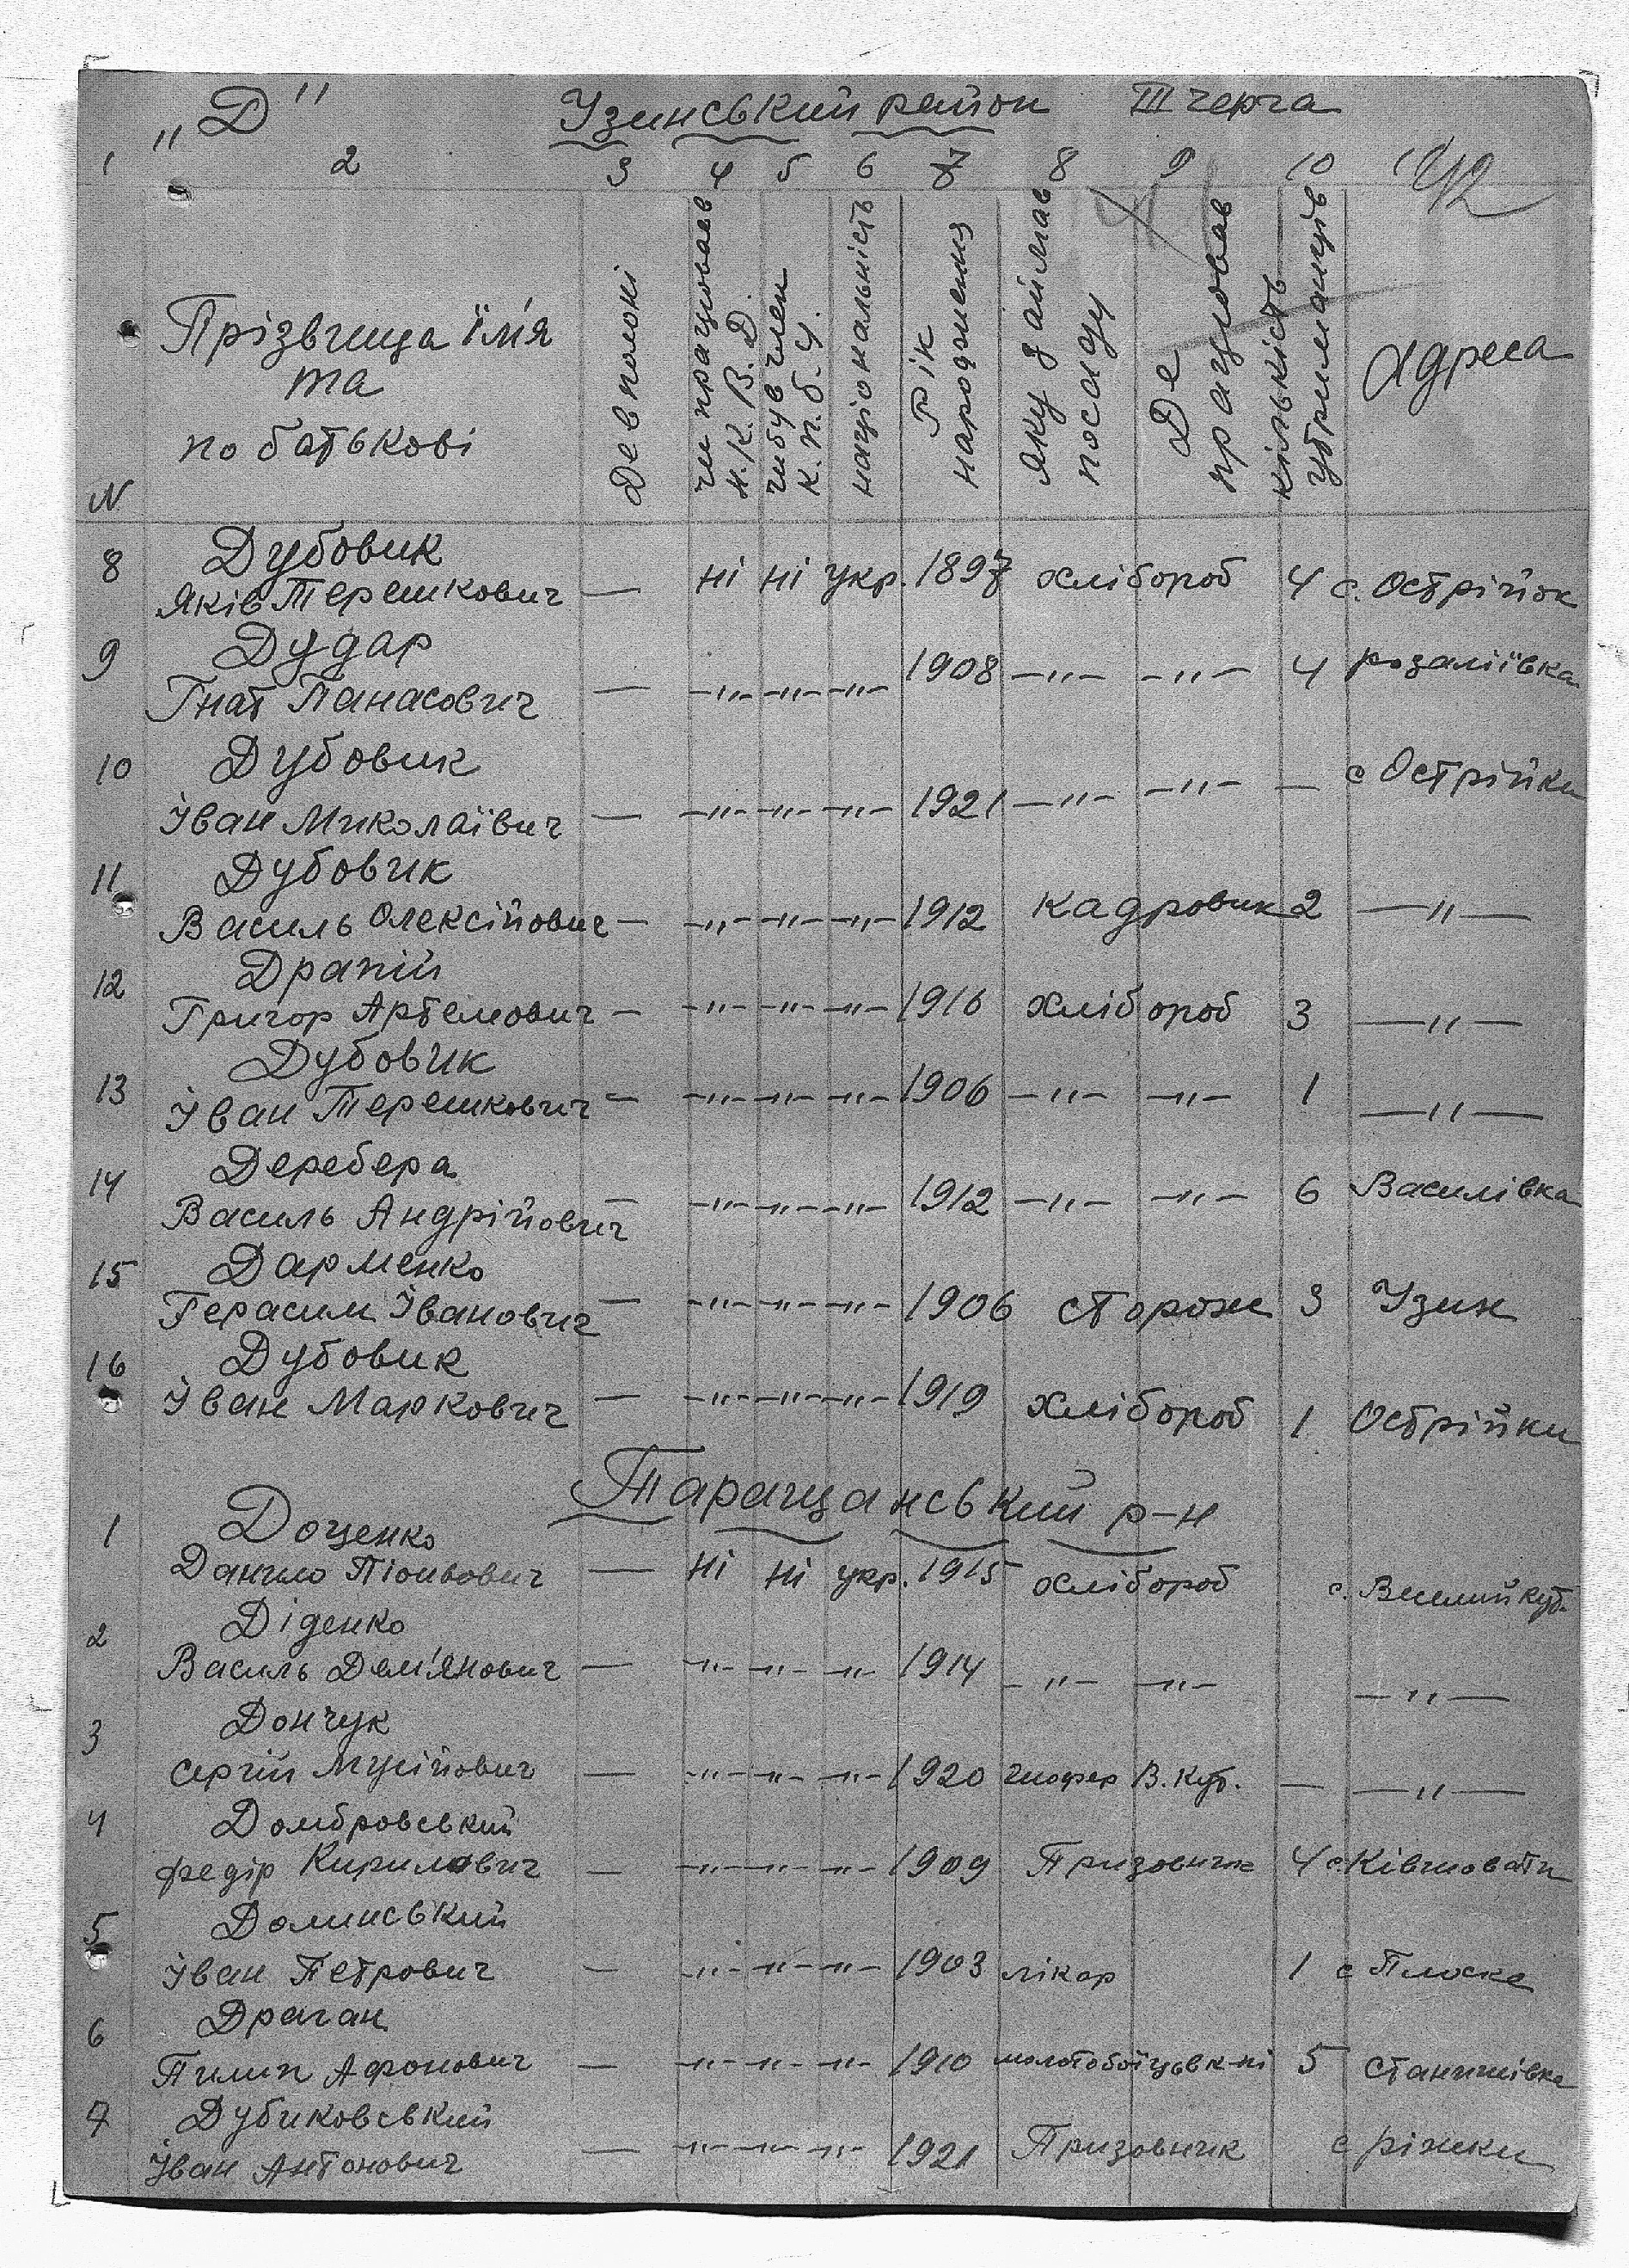 „Д" Узинський район III черга
1 2 3 4 5 6 7 8 9 10
N Прізвища ім'я та по батькові Де в полоні чи працював Н.К.В.Д. чи був член К.П.б.У. національність Рік народження Яку займав посаду Де працював кількість утриманців адреса
8 Дубовик
Яків Терешкович — ні ні укр. 1897 хлібороб 4 с. Острійок
9 Дудар
Гнат Панасович — —"— —"— —"— 1908 —"— —"— 4 розаліївка
10 Дубовик
Іван Миколаївич — —"— —"— —"— 1921 —"— —"— — с Острійки
11 Дубовик
Василь Олексійович — —"— —"— —"— 1912 кадровик 2 —"—
12 Драпій
Григор Артемович — —"— —"— —"— 1916 хлібороб 3 —"—
13 Дубовик
Іван Терешкович — —"— —"— —"— 1906 —"— —"— 1 —"—
14 Деребера
Василь Андрійович — —"— —"— —"— 1912 —"— —"— 6 Василівка
15 Дарменко
Герасим Іванович — —"— —"— —"— 1906 сторож 3 Узин
16 Дубовик
Іван Маркович — —"— —"— —"— 1919 хлібороб 1 Острійки
Таращанський р-н
1 Доценко
Данило — ні ні укр. 1915 хлібороб с.
2 Діденко
Василь Дем'янович — —"— —"— —"— 1914 —"— —"— —"—
3 Дончук
Сергій Мусійович — —"— —"— —"— 1920 шофер В. Куб. — —"—
4 Домбровський
Федір Кирилович — —"— —"— —"— 1909 Призовник 4 с Ківшовати
5 Долинський
Іван Петрович — —"— —"— —"— 1903 лікар 1 с Плоске
6 Драган
Пилип Афонович — —"— —"— —"— 1910 молотобоїць в к-ні 5 Станишівка
7 Дубиковський
Іван Антонович — —"— —"— —"— 1921 Призовник с ріжки